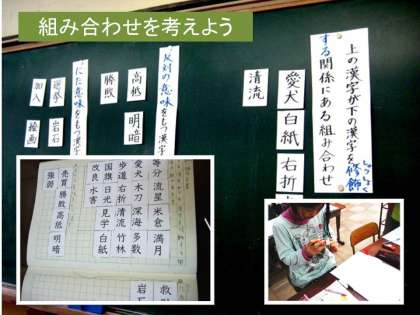 組み合わせを考えよう
上の漢字が下の漢字を修飾
しゅうしょく
する関係にある組み合わせ
愛犬
白紙
右折
清流
反対の意味をもつ漢字
高低
明暗
勝敗
にた意味をもつ漢字
岩石
絵画
加入
等分 流星 米倉 満月
愛犬 木刀 深海 多数
歩道 右折 清流 竹林
国旗 日光 見学 白紙
改良 水害
売買 勝敗 高低 明暗
強弱
岩石